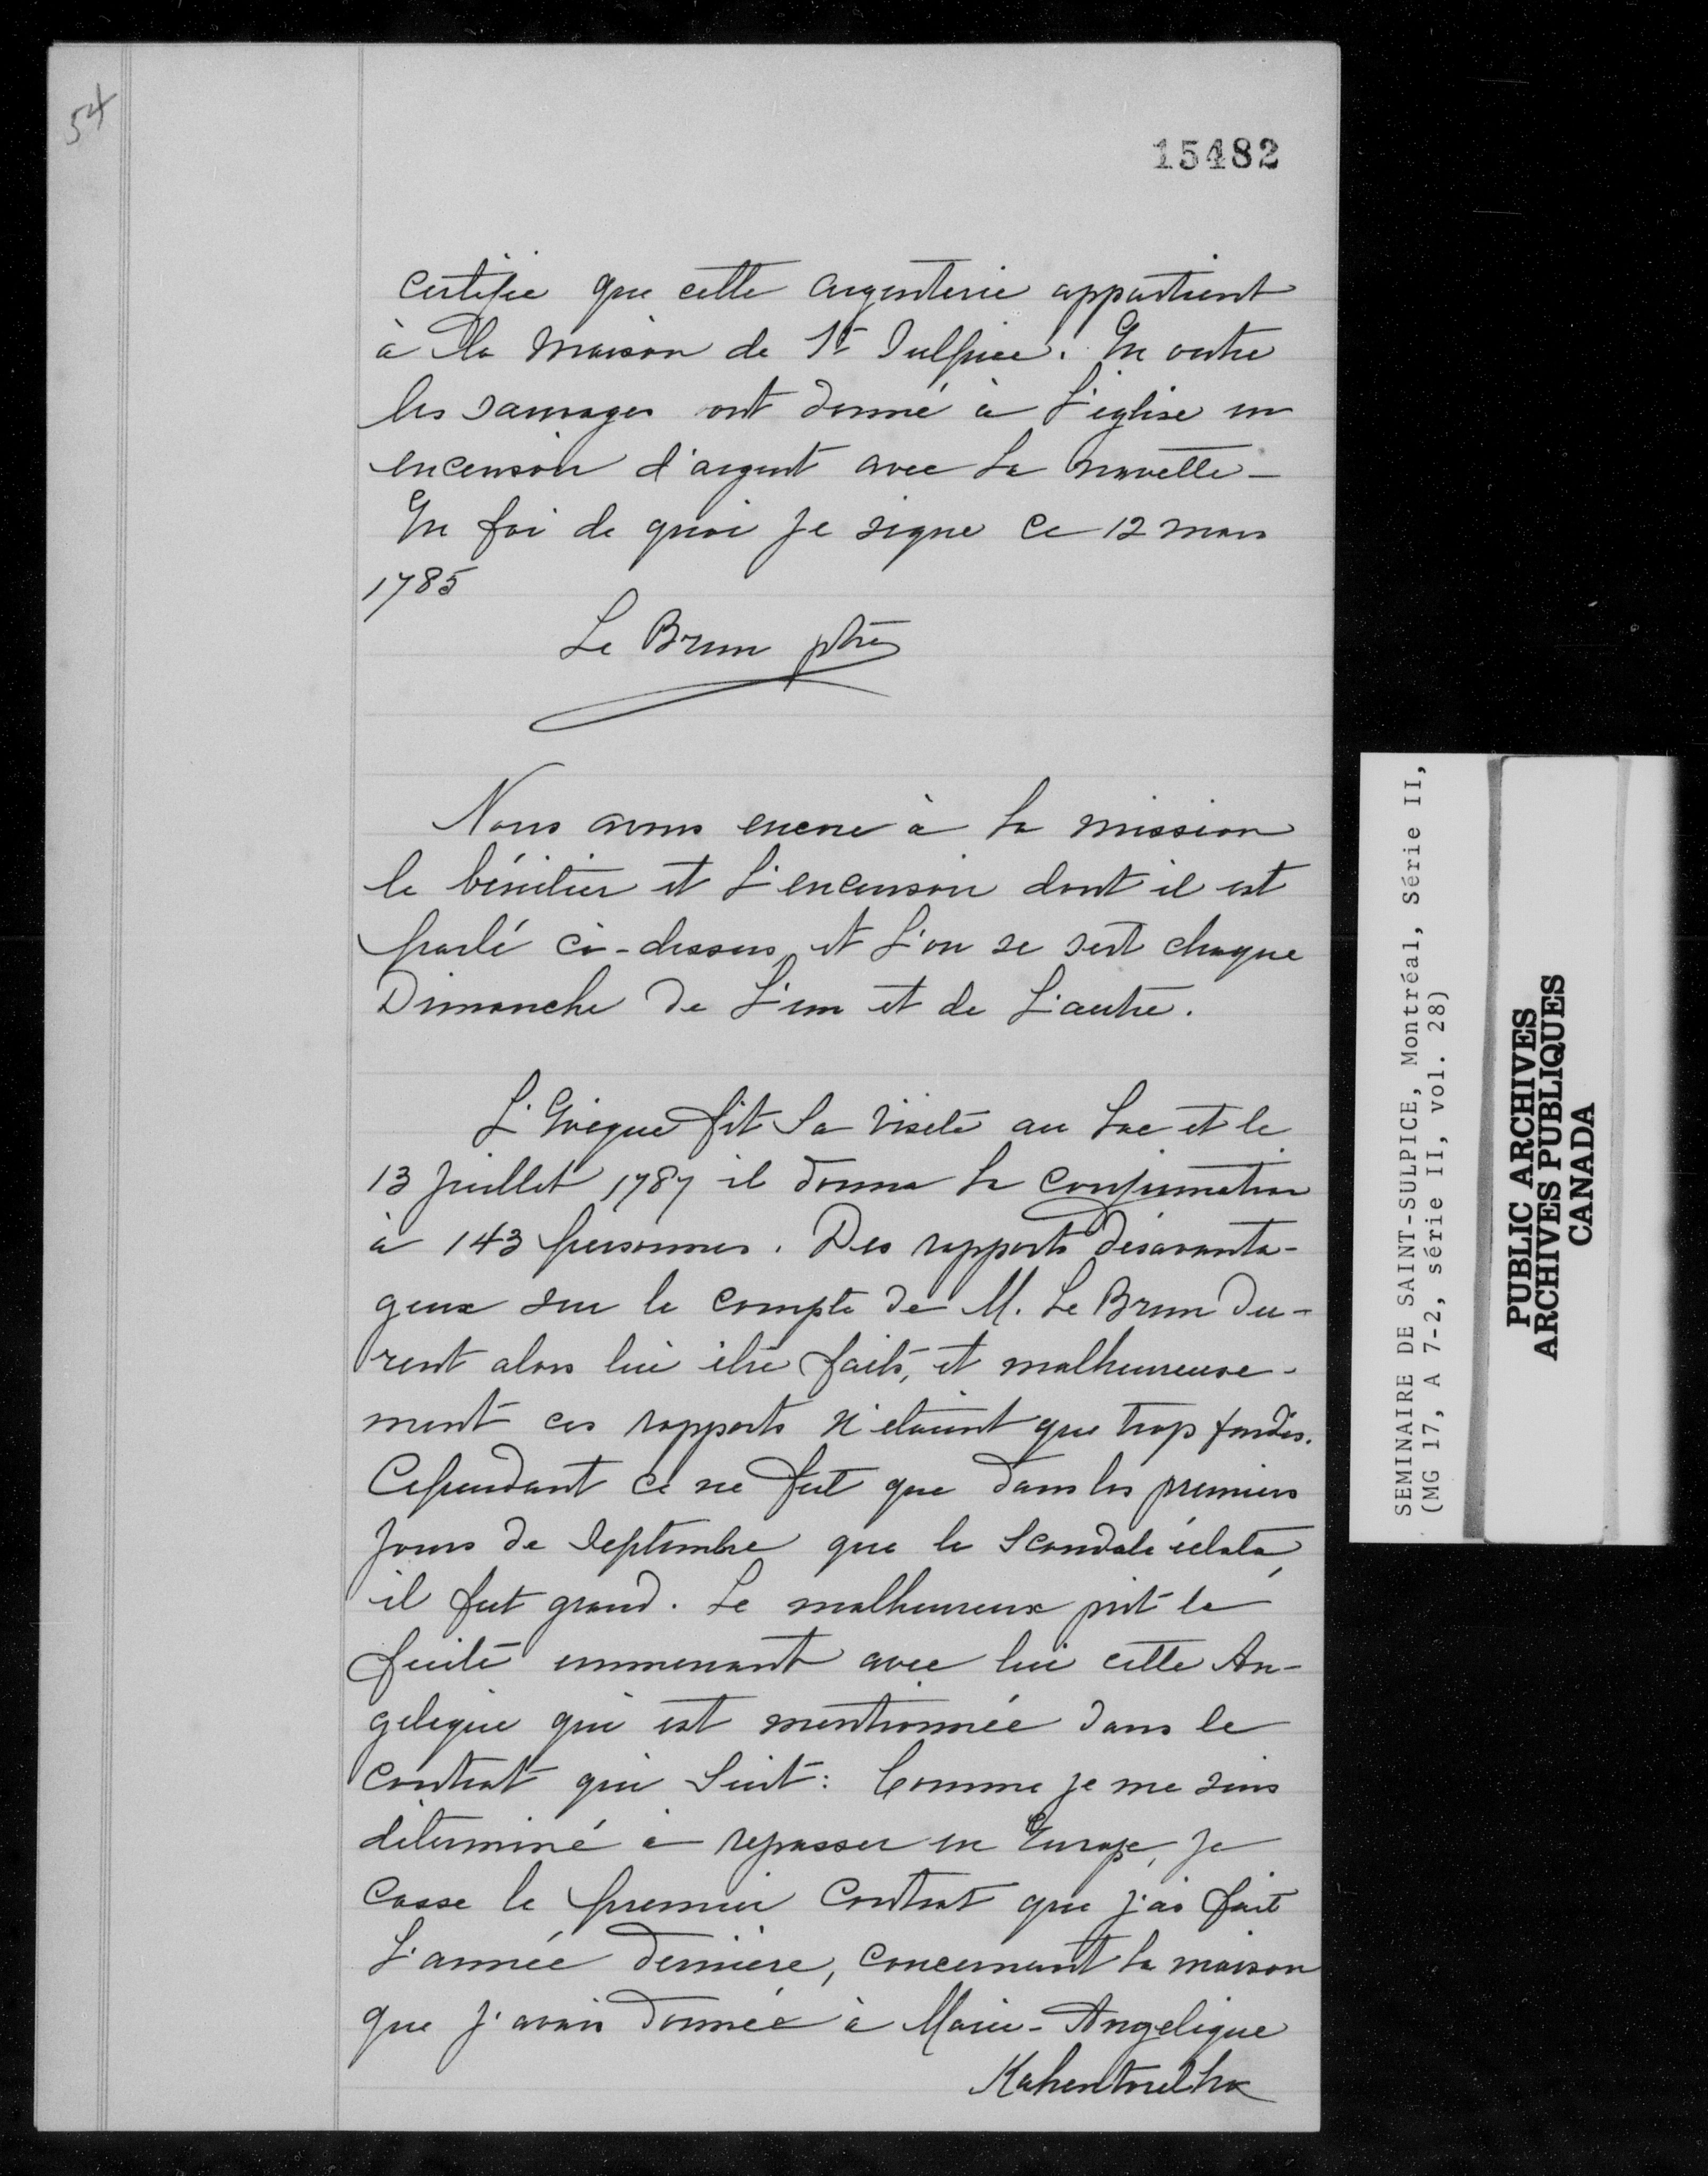 54
15482
certifie que cette argenterie appartient
à la maison de St Sulpice. En outre
les sauvages ont donné à l'église un
encensoir d'argent avec la navette -
En foi de quoi je signe ce 12 mars
1785
Le Brun ptre
Nous avons encore à la mission
le bénitier et l'encensoir dont il est
parlé ci-dessus et l'on se sert chaque
Dimanche de l'un et de l'autre.
L'Evêque fit sa visite au Lac et le
13 juillet 1787 il donna la confirmation
à 143 personnes. Des rapports désavanta-
geux sur le compte de M. Le Brun du-
rent alors lui être faits, et malheureuse-
ment ces rapports n'étaient que trop fondés.
Cependant ce ne fut que dans les premiers
jours de Septembre que le scandale éclata,
il fut grand. Le malheureux prit la
fuite emmenant avec lui cette An-
gelique qui est mentionnée dans le
contrat qui suit: Comme je me suis
déterminé à repasser en Europe, je
casse le premier contrat que j'ai fait
l'année dernière, concernant la maison
que j'avais donnée à Marie-Angelique
SEMINAIRE DE SAINT-SULPICE, Montréal, Série II,
(MG 17, A 7-2, série II, vol. 28)
PUBLIC ARCHIVES
ARCHIVES PUBLIQUES
CANADA